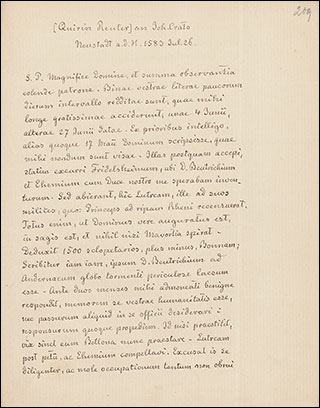 219
[Quirin Reuter] an Joh. Crato
Neustadt a.d.H. 1583 Jul. 26.
S. P. Magnifice Domine, et summa observantia
colende patrone. Binae vestrae literae paucorum
dierum intervallo redditae sunt, quae mihi
longe gratissimae acciderunt; unae 4 Junii,
alterae 27 Junii datae. Ex prioribus intelligo,
alias quoque 17 Maii Dominum scripsisse, quae
mihi nondum sunt visae. Illas postquam accepi,
statim excurri Fridelsheimum, ubi D. Beutrichium
et Ehemium cum Duce nostro me sperabam inven-
turum. Sed abierant, hic Lutream, ille ad suos
milites, quos Princeps ad ripam Rheni recensuerat.
Totus enim, ut Dominus vere auguratus est,
in sagis est, et nihil nisi Mavortia spirat.
Deduxit 1500 sclopetarios, plus minus, Bonnam;
Scribitur iam iam, ipsum D. Beutrichium ad
Andernacum globo tormenti periculose laesum
esse. Ante duos menses mihi admonenti benigne
respondit, memorem se vestrae humanitatis esse,
nec passurum aliquid in se officii desiderari:
responsurum quoque propediem. Id nisi praestitit,
vix sind eum Bellona nunc praestare. Lutream
post ac Ehemium compellavi. Excusat is se
diligenter, ac mole occupationum tantum non obrui